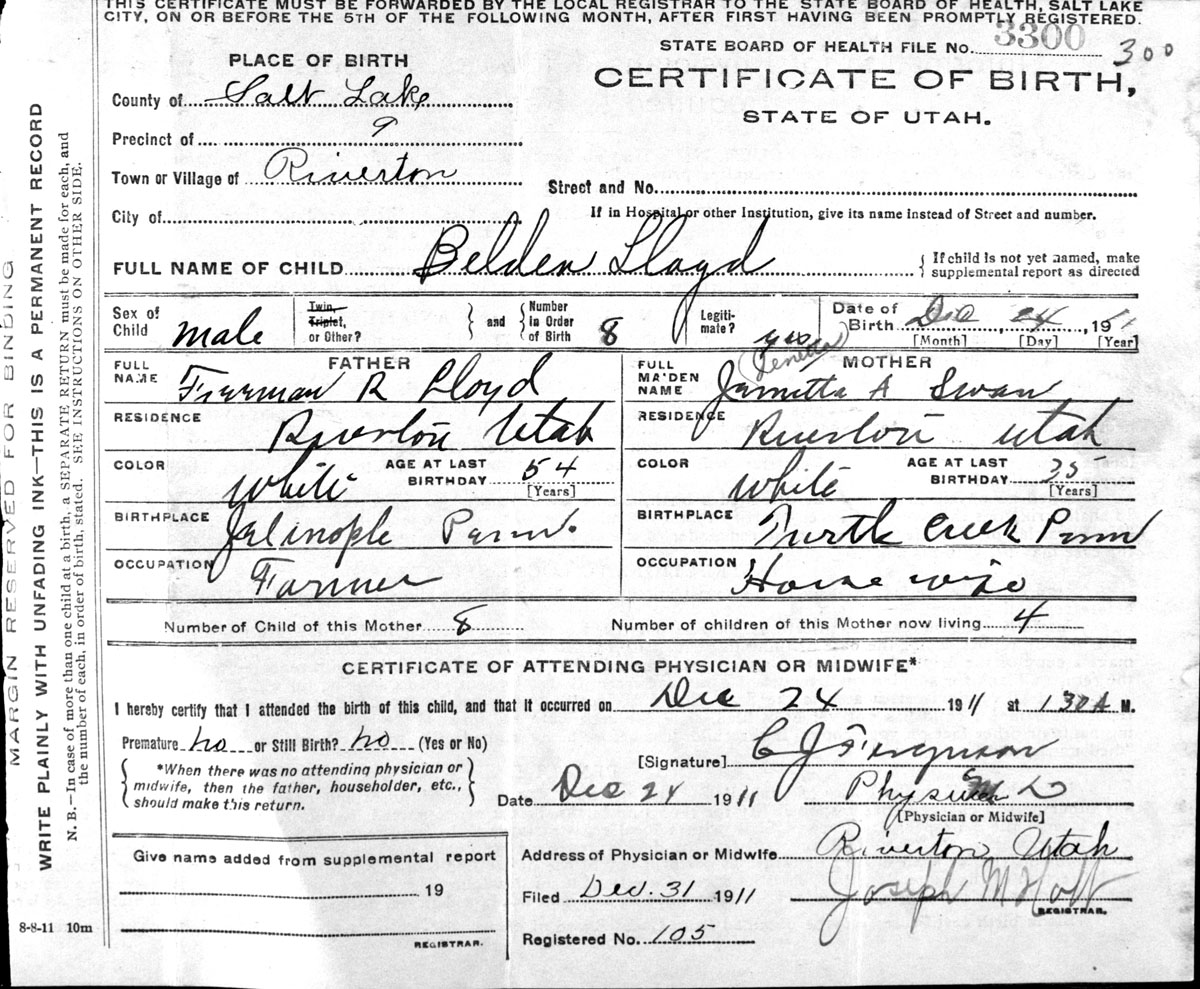 THIS CERTIFICATE MUST BE FORWARDED BY THE LOCAL REGISTRAR TO THE STATE BOARD OF HEALTH, SALT LAKE
CITY, ON OR BEFORE THE 5TH OF THE FOLLOWING MONTH, AFTER FIRST HAVING BEEN PROMPTLY REGISTERED.
STATE BOARD OF HEALTH FILE No. 3300 300
PLACE OF BIRTH
CERTIFICATE OF BIRTH,
STATE OF UTAH.
County of Salt Lake
Precinct of 9
Town or Village of Riverton
Street and No.
City of
If in Hospital or other Institution, give its name instead of Street and number.
FULL NAME OF CHILD Belden Lloyd
{ If child is not yet named, make
supplemental report as directed
Sex of Child male
Twin, Triplet, or Other?
and
Number in Order of Birth 8
Legitimate? yes
Date of Birth Dec, 24, 1911
[Month] [Day] [Year]
FATHER
FULL NAME Freeman R Lloyd
MOTHER
(Lenetta)
FULL MAIDEN NAME A Swan
RESIDENCE Riverton Utah
RESIDENCE Riverton Utah
COLOR White
AGE AT LAST BIRTHDAY 54
[Years]
COLOR White
AGE AT LAST BIRTHDAY 35
[Years]
BIRTHPLACE Jelinople Penn.
BIRTHPLACE Turtle Creek Penn
OCCUPATION Farmer
OCCUPATION House wife
Number of Child of this Mother 8
Number of children of this Mother now living 4
CERTIFICATE OF ATTENDING PHYSICIAN OR MIDWIFE*
I hereby certify that I attended the birth of this child, and that it occurred on Dec 24 1911 at 1 30 A M.
Premature no or Still Birth? no (Yes or No)
[Signature] C J Ferguson
{ *When there was no attending physician or
midwife, then the father, householder, etc.,
should make this return. }
Date Dec 24 1911
Physician M D
[Physician or Midwife]
Give name added from supplemental report
19
REGISTRAR.
Address of Physician or Midwife Riverton Utah
Filed Dec. 31 1911 Joseph M Holt
REGISTRAR.
Registered No. 105
8-8-11 10m
MARGIN RESERVED FOR BINDING
WRITE PLAINLY WITH UNFADING INK—THIS IS A PERMANENT RECORD
N. B.—In case of more than one child at a birth, a SEPARATE RETURN must be made for each, and
the number of each, in order of birth, stated. SEE INSTRUCTIONS ON OTHER SIDE.